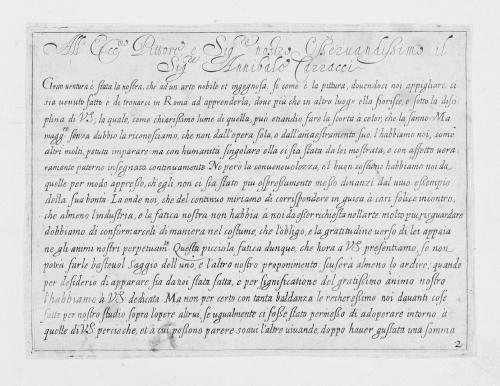 All' Ecc.mo Pittore e Sig.re nostro Osservandissimo il
Sig.re Annibale Carracci
Gran ventura è stata la nostra, che ad un arte nobile et ingegnosa, si come è la pittura, douendoci noi appigliare, ci
sia uenuto fatto e di trouarci in Roma ad apprenderla, doue più che in altro luogo ella fiorisce, e sotto la disci
plina di V.S. la quale, come chiarissimo lume di quella, può etiandio fare la scorta à color, che la sanno. Ma
magg.re senza dubbio la riconosciamo, che non dall'opera sola, o dall'ammaestramento suo, l'habbiamo noi, come
altri molti, potuta imparare: ma con humanità singolare ella ci sia stata da lei mostrata, o con affetto uera
ramente paterno insegnata continuamente. Ne però la conueneuolezza, el buon costume habbiamo noi da
quelle per modo appreso, ch'egli non ci sia stato più espressamente messo dinanzi dal uiuo essempio
della sua bontà. La onde noi, che del continuo miriamo di corrispondere in guisa à così felice incontro,
che almeno l'industria, e la fatica nostra non habbia à noi da esser richiesta nell'arte. molto più, risguardare
dobbiamo di conformarceli di maniera nel costume, che l'obligo, e la gratitudine uerso di lei appaia
ne gli animi nostri perpetuam.te Questa picciola fatica dunque, che hora à V.S. presentiamo, se non
potrà farle basteuol saggio dell'uno, e l'altro nostro proponimento scuserà almeno lo ardire; quando
per desiderio di apparare, sia da noi stata fatta, e per significatione del gratissimo animo nostro
l'habbiamo à V.S. dedicata. Ma non per certo con tanta baldanza le recheressimo noi dauanti cose
fatte per nostro studio sopra l'opere altrui, se ugualmente ci fosse stato permesso di adoperare intorno à
quelle di V.S. percioche, et à cui possono parere soaui l'altre uiuande, doppo hauer gustata una somma
2